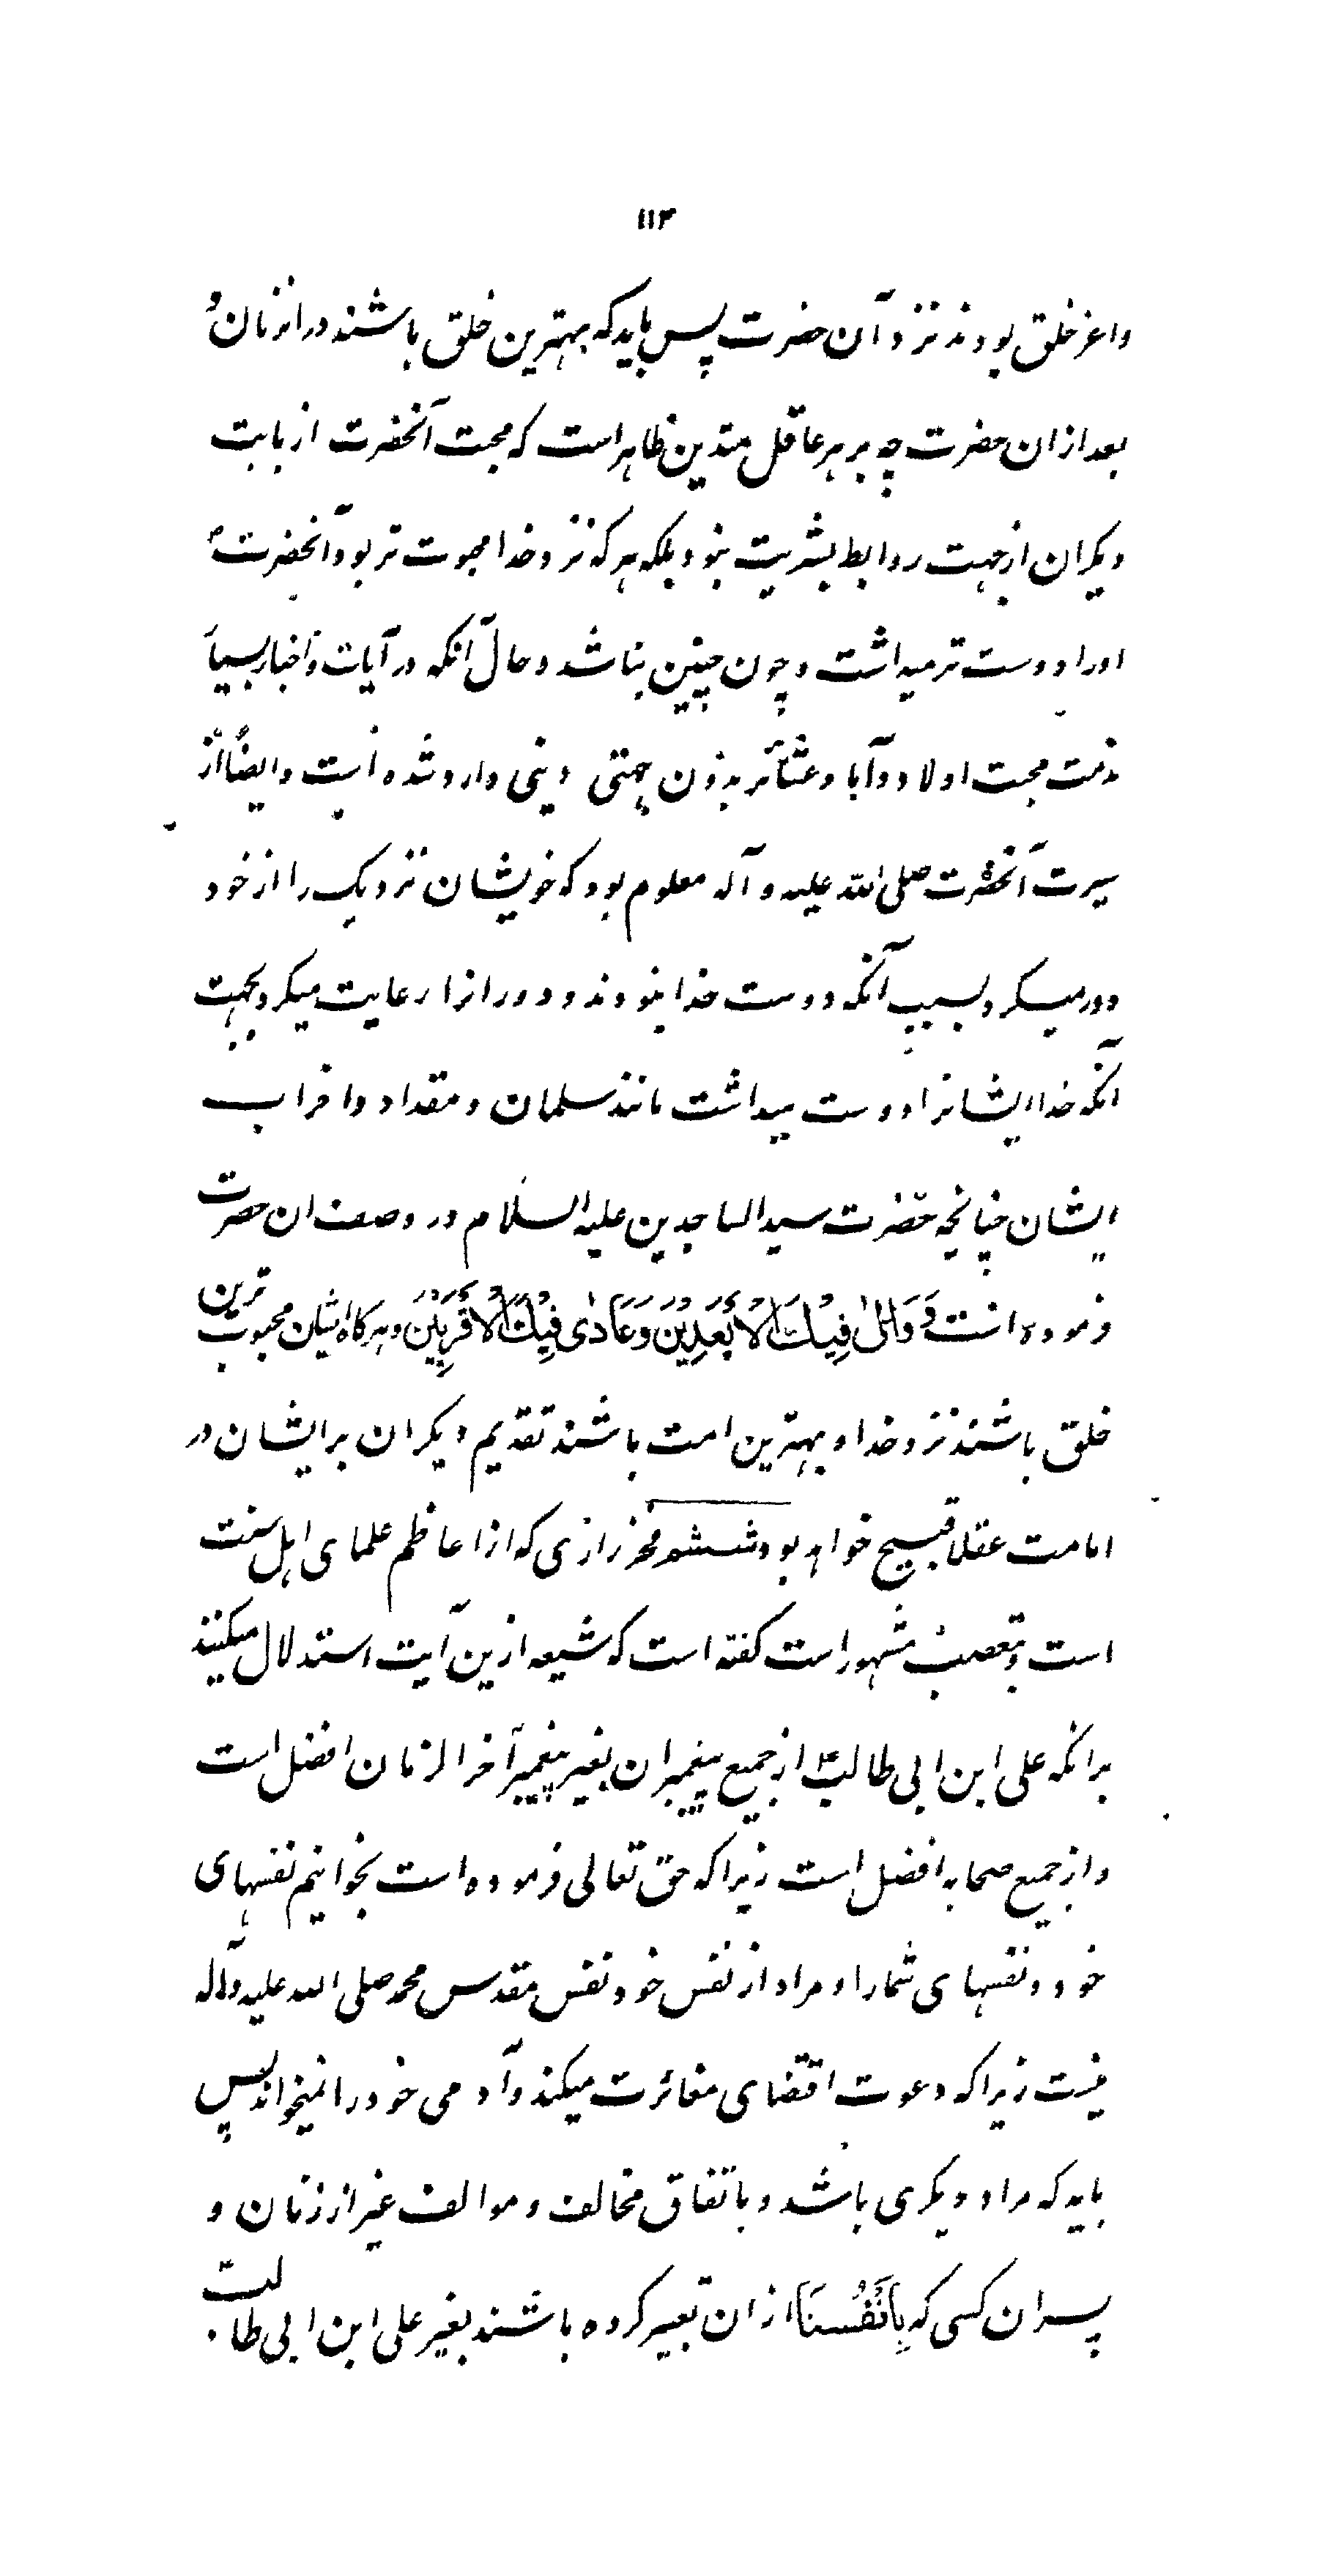 ۱۱۳
واعز خلق بودند نزد آن حضرت پس باید که بهترین خلق باشند در انزمان و
بعد ازان حضرت چه بر هر عاقل متدین ظاهر است که محبت آنحضرت از بابت
دیکران از جهت روابط بشریت نبود بلکه هر که نزد خدا محبوت تر بود آنحضرت
اورا دوست تر میداشت و چون چنین نباشد و حال آنکه در آیات و اخبار بسیا
مذمت محبت اولاد و آبا و عشائر بدون جهتی دینی وارد شده است و ایضاً از
سیرت آنحضرت صلی الله علیه و آله معلوم بود که خویشان نزدیک را از خود
دور میکرد بسبب آنکه دوست خدا نبودند و دورانرا رعایت میکرد بجهت
آنکه خدا ایشانرا دوست میداشت مانند سلمان و مقداد و اضراب
ایشان چنانچه حضرت سید الساجدین علیه السلام در وصف ان حضرت
فرموده است وَ وَالىٰ فِيكَ الْاَبْعَدِيْنَ وَعَادٰى فِيْكَ الْاَقْرَبِيْنَ و هرکاه ایشان محبوب ترین
خلق باشند نزد خدا و بهترین امت باشند تقدیم دیکران بر ایشان در
امامت عقلا قبیح خواهد بود ششم فخر رازی که از اعاظم علمای اهل سنت
است و بتعصب مشهور است کفته است که شیعه ازین آیت استدلال میکنند
برانکه علی ابن ابی طالب ع از جمیع پیغمبران بغیر پیغمبر آخر الزمان افضل است
و از جمیع صحابه افضل است زیرا که حق تعالی فرموده است بخوانیم نفسهای
خود و نفسهای شما را و مراد از نفس خود نفس مقدس محمد صلی الله علیه و آله
نیست زیرا که دعوت اقتضای مغائرت میکند و آدمی خود را نمیخواند پس
باید که مراد دیکری باشد و باتفاق مخالف و موالف غیر از زنان و
پسران کسی که بِاَنْفُسِنَا ازان تعبیر کرده باشند بغیر علی ابن ابی طالب